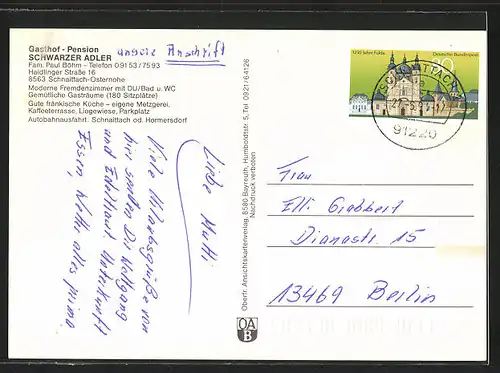 Gasthof - Pension
SCHWARZER ADLER
unsere Anschrift
Fam. Paul Böhm - Telefon 09153/7593
Haidlinger Straße 16
8563 Schnaittach-Osternohe
Moderne Fremdenzimmer mit DU/Bad u. WC
Gemütliche Gasträume (180 Sitzplätze)
Gute fränkische Küche – eigene Metzgerei.
Kaffeeterrasse, Liegewiese, Parkplatz
Autobahnausfahrt. Schnaittach od. Hormersdorf
Liebe Mutti
Viele Urlaubsgrüße von
hier senden Dir Wolfgang
und Edeltraut Unterkunft
Essen, Wetter alles prima
Oberfr. Ansichtskartenverlag, 8580 Bayreuth, Humboldtstr. 5, Tel. 0921/64126
Nachdruck verboten
OA
B
1250 Jahre Fulda
Deutsche Bundespost
91220
Frau
Elli Grabbert
Dianastr. 15
13469 Berlin